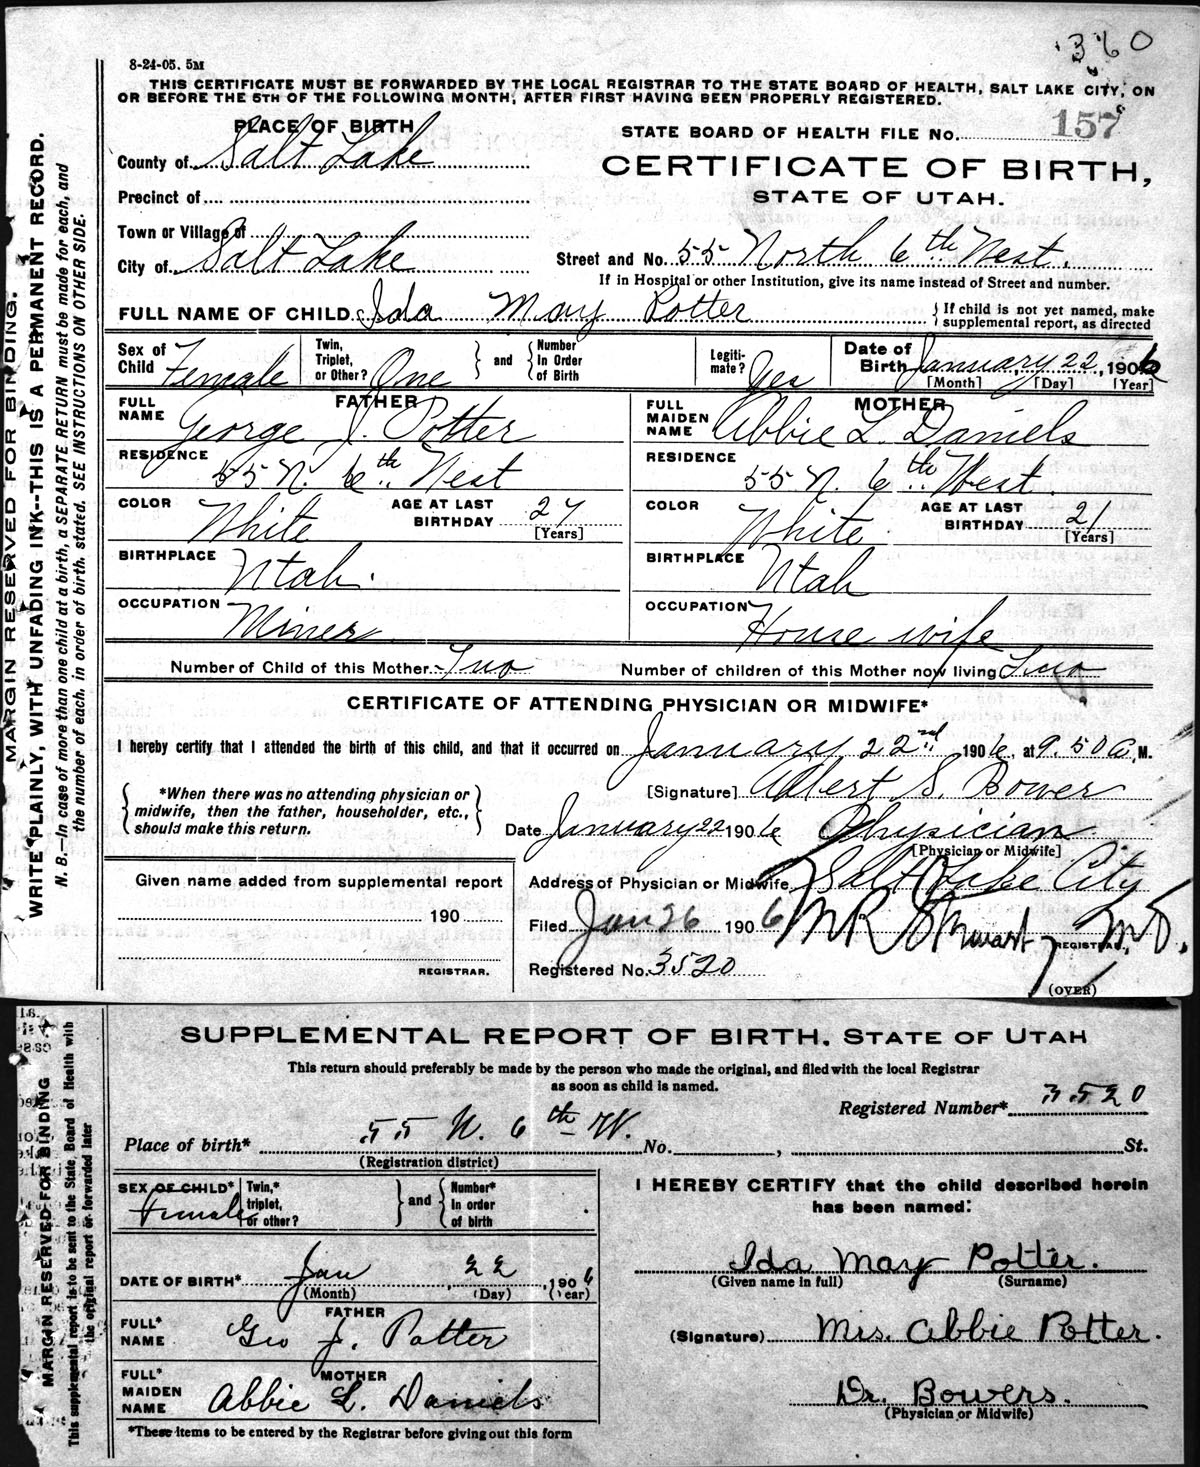 360
8-24-05. 5M
THIS CERTIFICATE MUST BE FORWARDED BY THE LOCAL REGISTRAR TO THE STATE BOARD OF HEALTH, SALT LAKE CITY, ON
OR BEFORE THE 5TH OF THE FOLLOWING MONTH, AFTER FIRST HAVING BEEN PROPERLY REGISTERED.
PLACE OF BIRTH
STATE BOARD OF HEALTH FILE No. 157
County of Salt Lake
CERTIFICATE OF BIRTH,
Precinct of
STATE OF UTAH.
Town or Village of
City of Salt Lake
Street and No. 55 North 6th West.
If in Hospital or other Institution, give its name instead of Street and number.
FULL NAME OF CHILD Ida May Potter
{If child is not yet named, make
supplemental report, as directed
Sex of Child Female
Twin, Triplet, or Other? One
and
Number In Order of Birth
Legiti-mate? Yes
Date of Birth January 22, 1906
[Month] [Day] [Year]
FATHER
FULL NAME George J. Potter
RESIDENCE 55 N. 6th West
COLOR White
AGE AT LAST BIRTHDAY 27
[Years]
BIRTHPLACE Utah.
OCCUPATION Miner
MOTHER
FULL MAIDEN NAME Abbie L. Daniels
RESIDENCE 55 N. 6th West.
COLOR White
AGE AT LAST BIRTHDAY 21
[Years]
BIRTHPLACE Utah
OCCUPATION House wife
Number of Child of this Mother Two
Number of children of this Mother now living Two
CERTIFICATE OF ATTENDING PHYSICIAN OR MIDWIFE*
I hereby certify that I attended the birth of this child, and that it occurred on January 22nd 1906, at 9.50 A, M.
*When there was no attending physician or
midwife, then the father, householder, etc.,
should make this return.
[Signature] Albert S. Bower
Date January 22 1906 Physician
[Physician or Midwife]
Given name added from supplemental report
190
REGISTRAR.
Address of Physician or Midwife Salt Lake City
Filed Jan 26 1906 M R Stewart, M.D.
REGISTRAR.
Registered No. 3520
(OVER)
MARGIN RESERVED FOR BINDING.
WRITE PLAINLY, WITH UNFADING INK--THIS IS A PERMANENT RECORD.
N. B.—In case of more than one child at a birth, a SEPARATE RETURN must be made for each, and
the number of each, in order of birth, stated. SEE INSTRUCTIONS ON OTHER SIDE.
SUPPLEMENTAL REPORT OF BIRTH, STATE OF UTAH
This return should preferably be made by the person who made the original, and filed with the local Registrar
as soon as child is named.
Registered Number* 3520
Place of birth* 55 N. 6th W. No. , St.
(Registration district)
SEX OF CHILD* Female
Twin,* triplet, or other?
and
Number* In order of birth
DATE OF BIRTH* Jan 22, 1906
(Month) (Day) (Year)
FATHER
FULL* NAME Geo J. Potter
MOTHER
FULL* MAIDEN NAME Abbie L. Daniels
*These items to be entered by the Registrar before giving out this form
I HEREBY CERTIFY that the child described herein
has been named:
Ida May Potter.
(Given name in full) (Surname)
(Signature) Mrs. Abbie Potter.
Dr. Bowers.
(Physician or Midwife)
MARGIN RESERVED FOR BINDING
This supplemental report is to be sent to the State Board of Health with
the original report or forwarded later